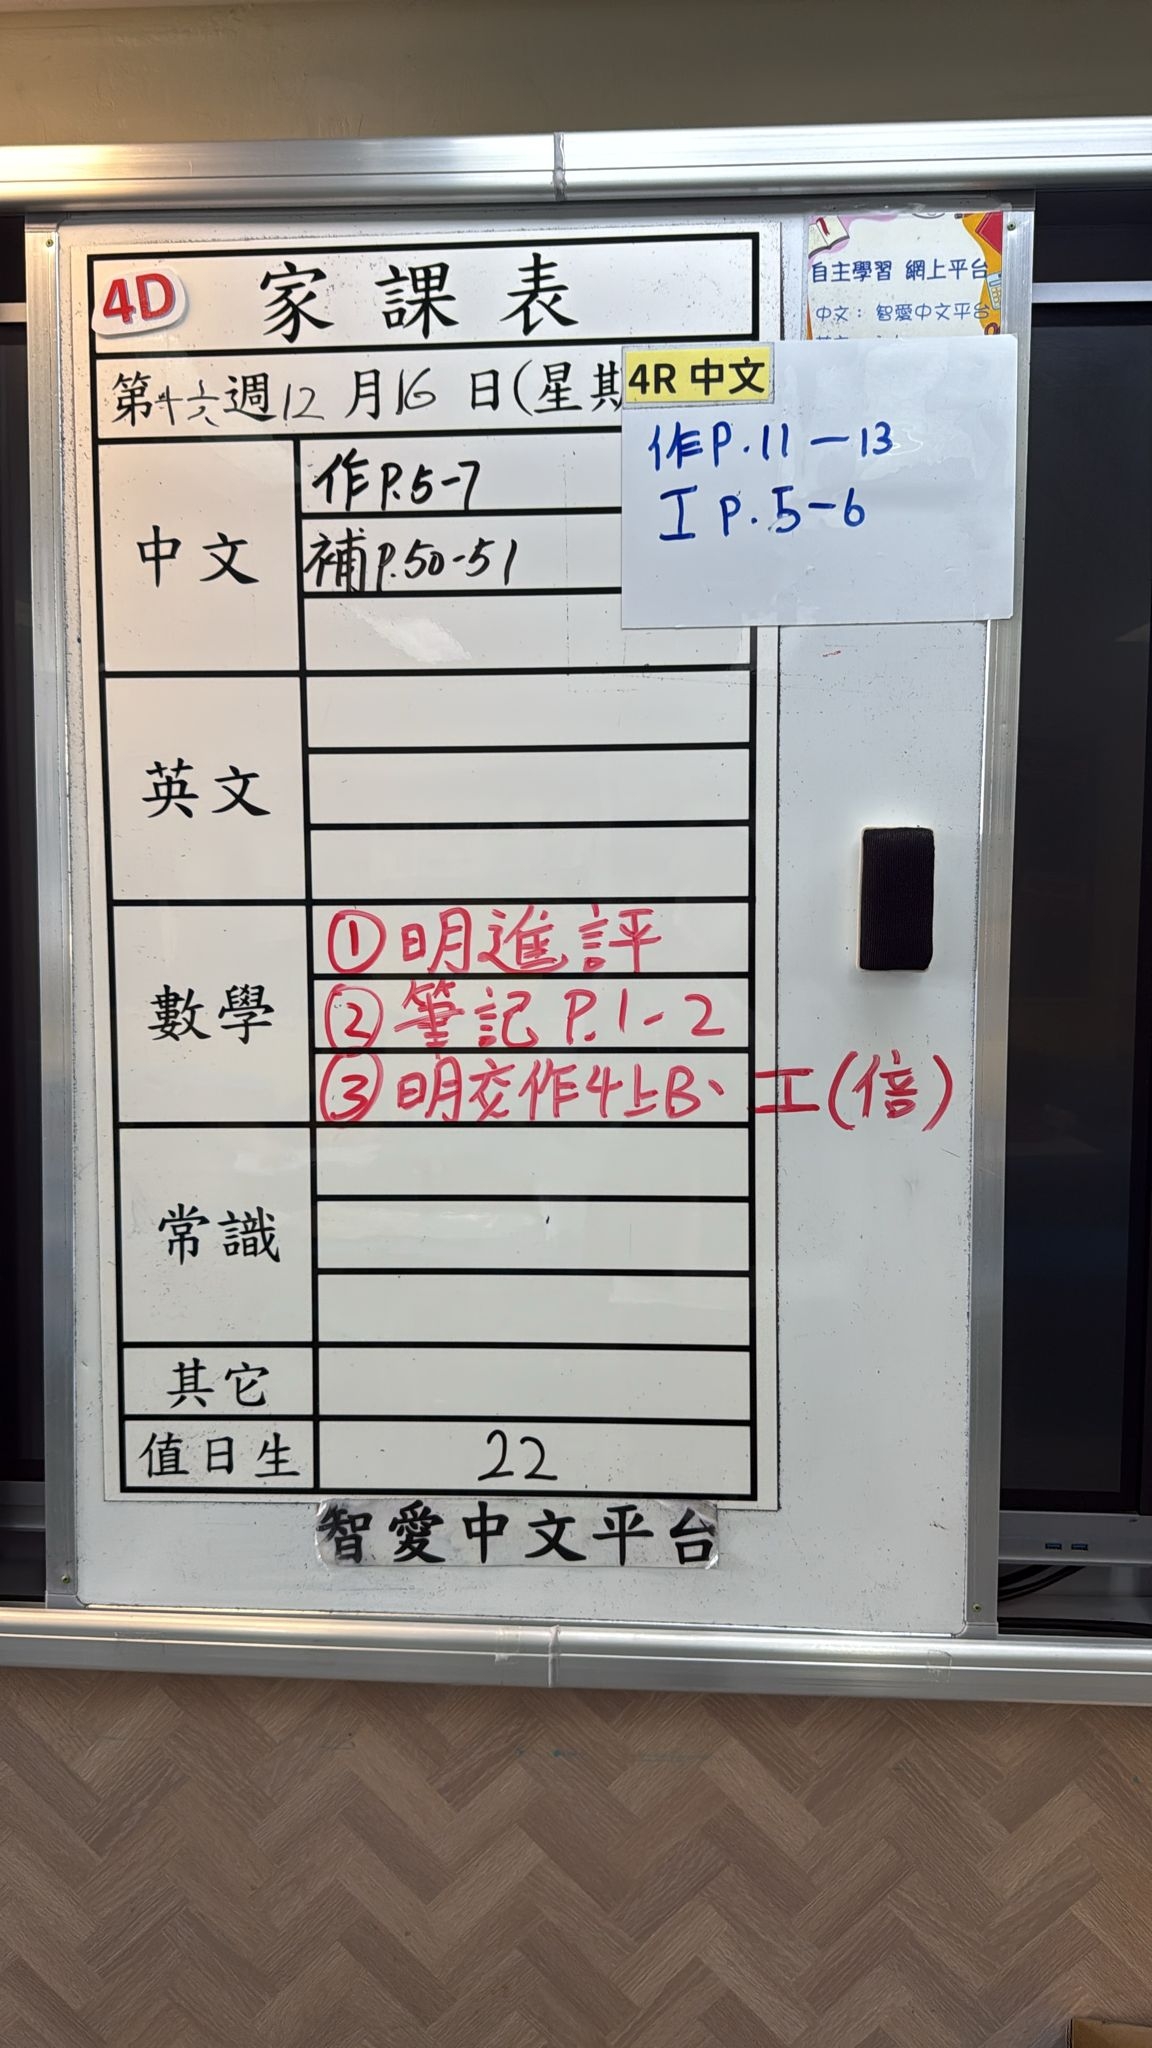 4D 家課表
自主學習 網上平台
中文：智愛中文平台
第十六週12月16日(星期
4R 中文
作P.11-13
工 P.5-6
中文
作P.5-7
補P.50-51
英文
數學
①明進評
②筆記P.1-2
③明交作4上B、工(倍)
常識
其它
值日生 22
智愛中文平台